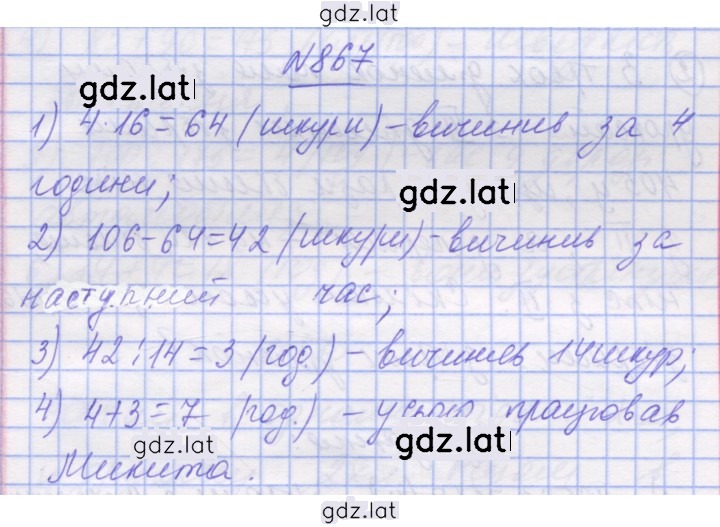 gdz.lat
№867
gdz.lat
1) 4·16=64 (шкури) - вичинив за 4
години;
gdz.lat
2) 106-64=42 (шкури) - вичинив за
наступний час;
3) 42:14=3 (год.) - вичиняв 14 шкур;
4) 4+3=7 (год.) - усього працював
gdz.lat gdz.lat
Микита.
gdz.lat